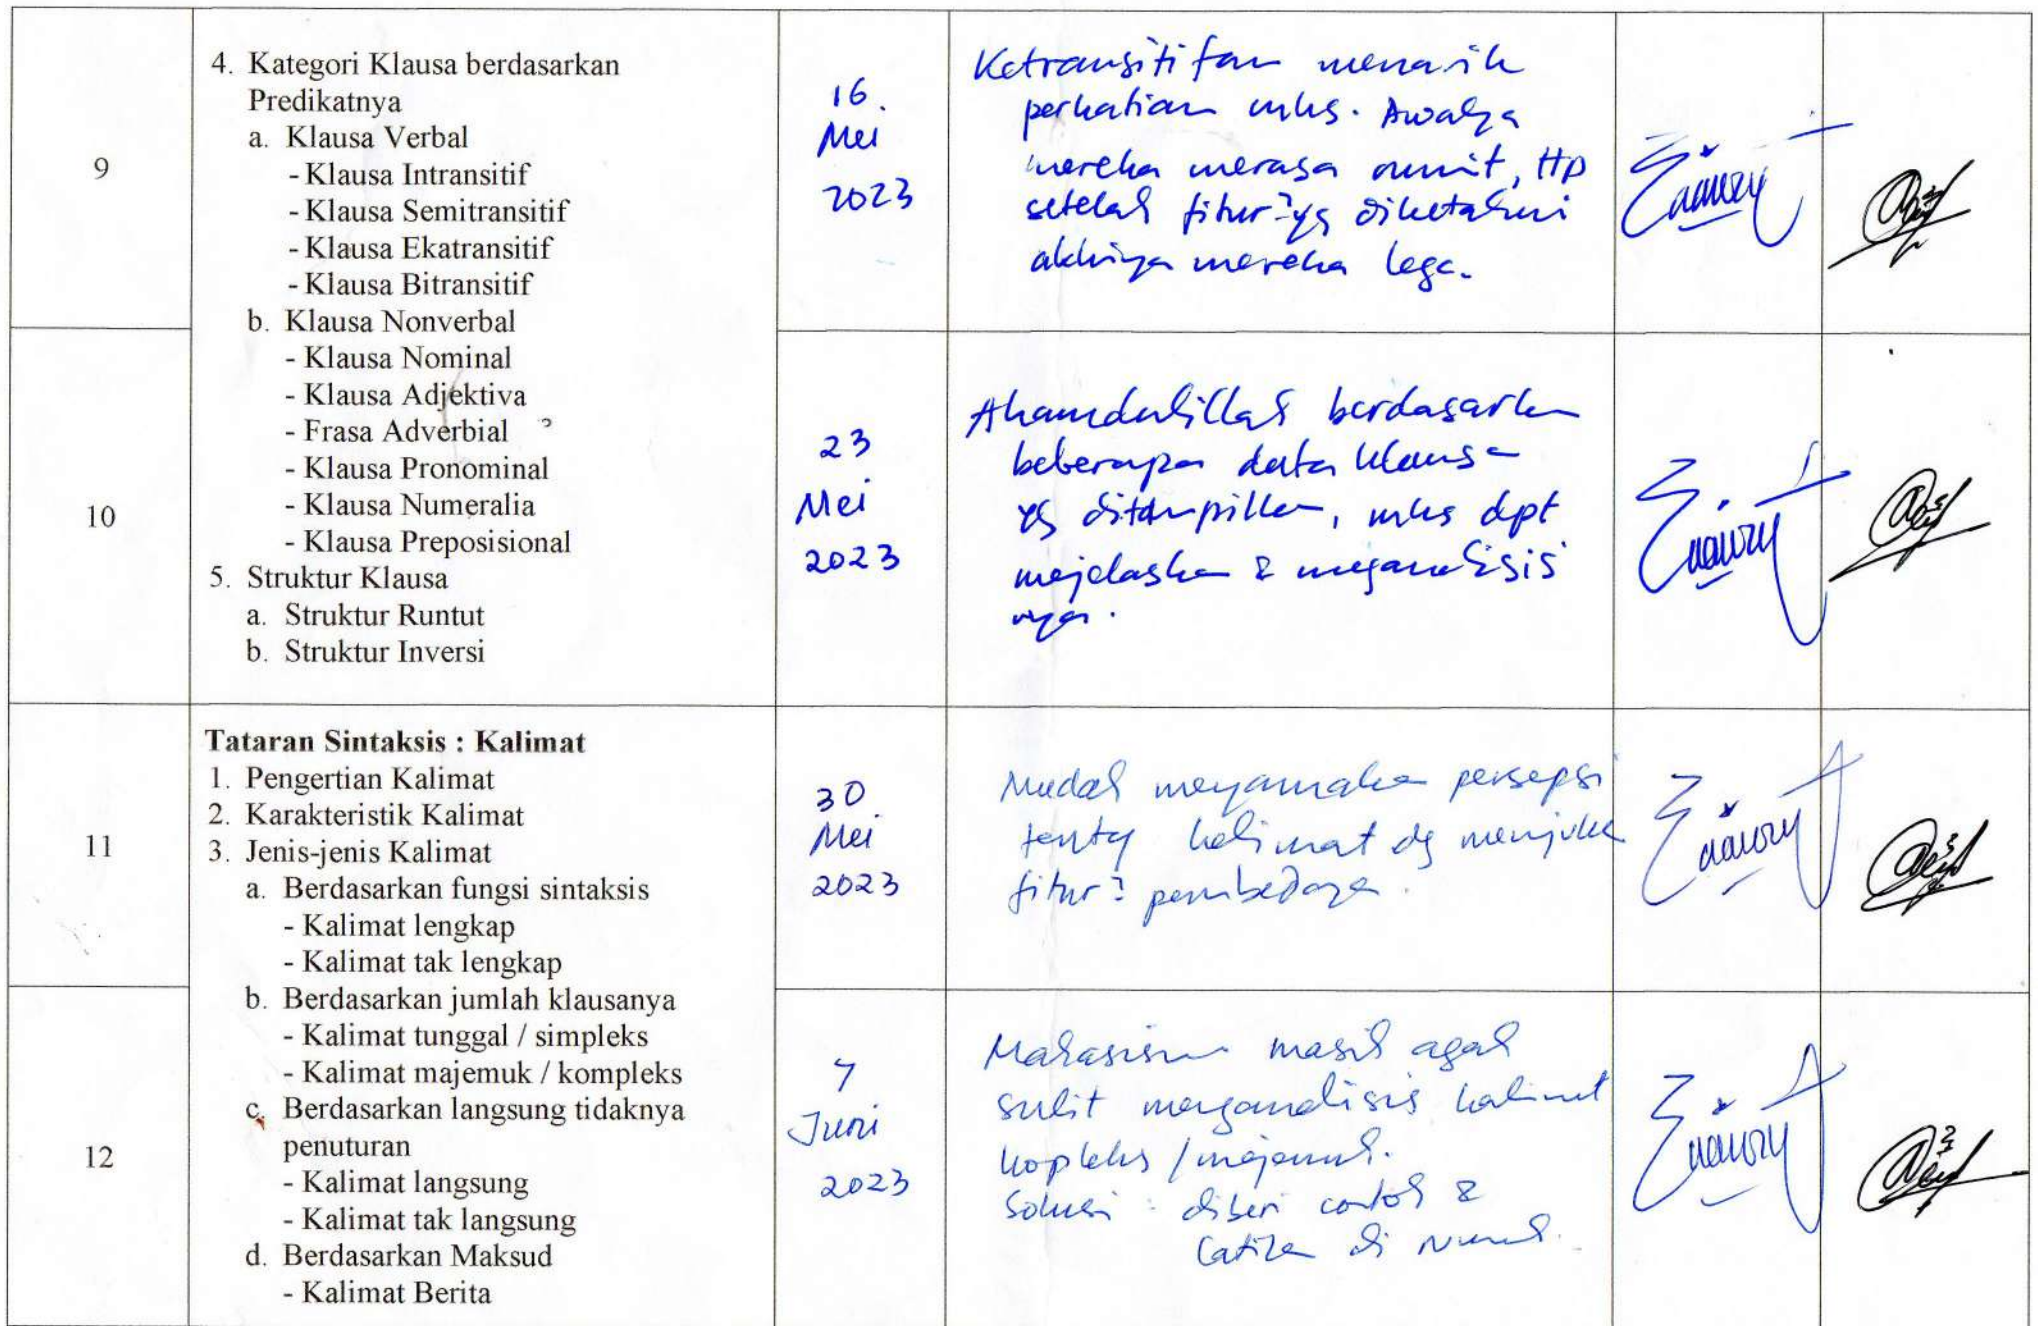 9
4. Kategori Klausa berdasarkan
Predikatnya
a. Klausa Verbal
- Klausa Intransitif
- Klausa Semitransitif
- Klausa Ekatransitif
- Klausa Bitransitif
b. Klausa Nonverbal
- Klausa Nominal
- Klausa Adjektiva
- Frasa Adverbial
- Klausa Pronominal
- Klausa Numeralia
- Klausa Preposisional
5. Struktur Klausa
a. Struktur Runtut
b. Struktur Inversi
16.
Mei
2023
Ketransitifan menarik
perhatian mhs. Awalya
mereka merasa rumit, ttp
setelah fitur² yg diketahui
akhirya mereka lega.
10
23
Mei
2023
Ahamdulillah berdasarkn
beberapa data klausa
yg ditampilkn, mhs dpt
mejelaskn & meganalisis
nya.
11
Tataran Sintaksis : Kalimat
1. Pengertian Kalimat
2. Karakteristik Kalimat
3. Jenis-jenis Kalimat
a. Berdasarkan fungsi sintaksis
- Kalimat lengkap
- Kalimat tak lengkap
b. Berdasarkan jumlah klausanya
- Kalimat tunggal / simpleks
- Kalimat majemuk / kompleks
c. Berdasarkan langsung tidaknya
penuturan
- Kalimat langsung
- Kalimat tak langsung
d. Berdasarkan Maksud
- Kalimat Berita
30
Mei
2023
Mudah meyamaka persepsi
tentg kalimat dg
fitur² pembedaya.
12
7
Juni
2023
masih agak
sulit meganalisis kalimat
kopleks / majemuk.
Solusi : diberi contoh &
di